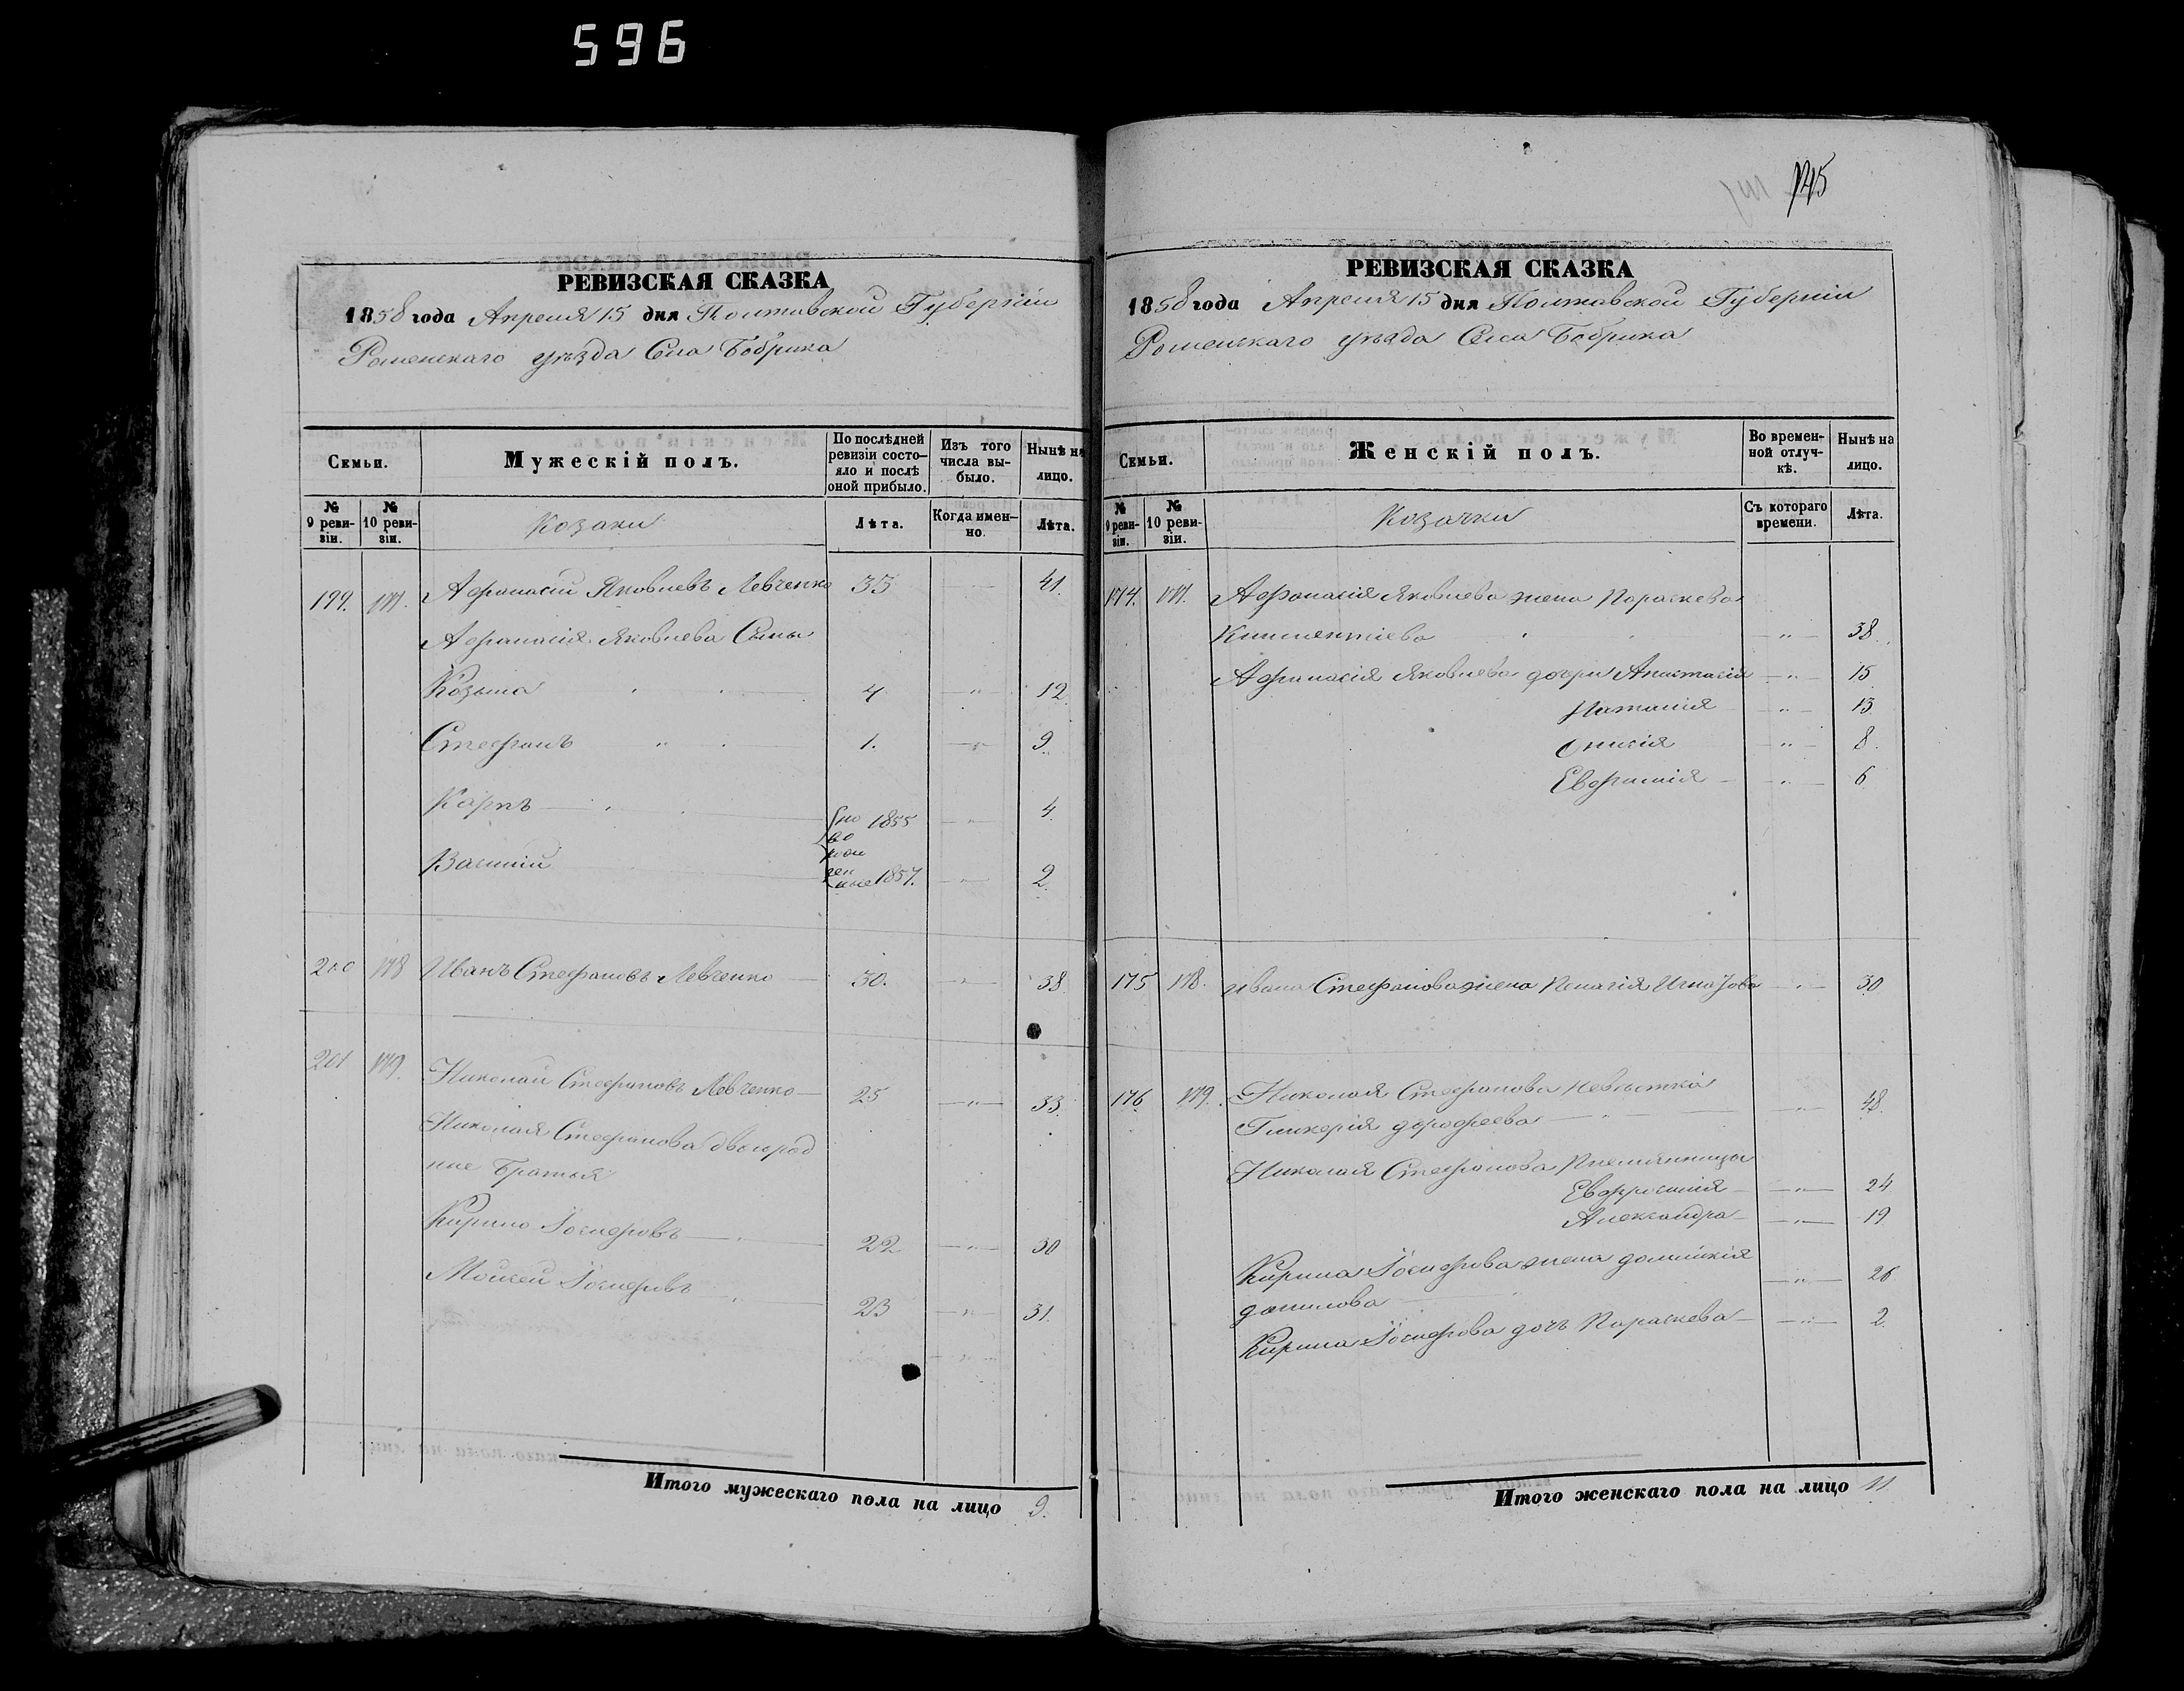 596
РЕВИЗСКАЯ СКАЗКА
1858 года Апреля 15 дня Полтавской Губерніи
Роменскаго уѣзда Села Бобрика
Семьи.
Мужескій полъ.
По послѣдней ревизіи состо-
яло и послѣ
оной прибыло.
Изъ того
числа вы-
было.
Нынѣ на
лицо.
№ 9 реви-
зіи.
№ 10 реви-
зіи.
Козаки
Лѣта.
Когда имен-
но.
Лѣта.
199. Афанасій Яковлевъ Левченко 33 41.
Афанасія Яковлева Сыны
Козьма 4 " 12.
Стефанъ 1. " 9.
Карпъ 1855 " 4.
но
во
рож
ден
ные
Василій 1857. " 2.
200 Иванъ Стефановъ Левченко 30. " 38
201 Николай Стефановъ Левченко 25 " 33.
Николая Стефанова двоюрод
ные Братья
Кирило Іосифовъ " 22 " 30
Моисей Іосифовъ " 23 " 31.
Итого мужескаго пола на лицо 9.
145
РЕВИЗСКАЯ СКАЗКА
1858 года Апреля 15 дня Полтавской Губерніи
Роменскаго уѣзда Села Бобрика
Семьи.
Женскій полъ.
Во времен-
ной отлуч-
кѣ.
Нынѣ на
лицо.
№ 9 реви-
зіи.
№ 10 реви-
зіи.
Козачки
Съ котораго
времени.
Лѣта.
174. Афанасія Яковлева жена Параскева
Климентіева " 38.
Афанасія Яковлева дочери Анастасія " 15
Наталія " 13
Онисія " 8.
Евфимія " 6
175 Ивана Стефанова жена Пелагія " 30
176. Николая Стефанова Невѣстка
Гликерія дорофеева " 48.
Николая Стефанова Племянницы
Евфросинія " 24
Александра " 19
Кирила Іосифова жена домникія
данилова " 26
Кирила Іосифова дочь Параскева " 2.
Итого женскаго пола на лицо 11.